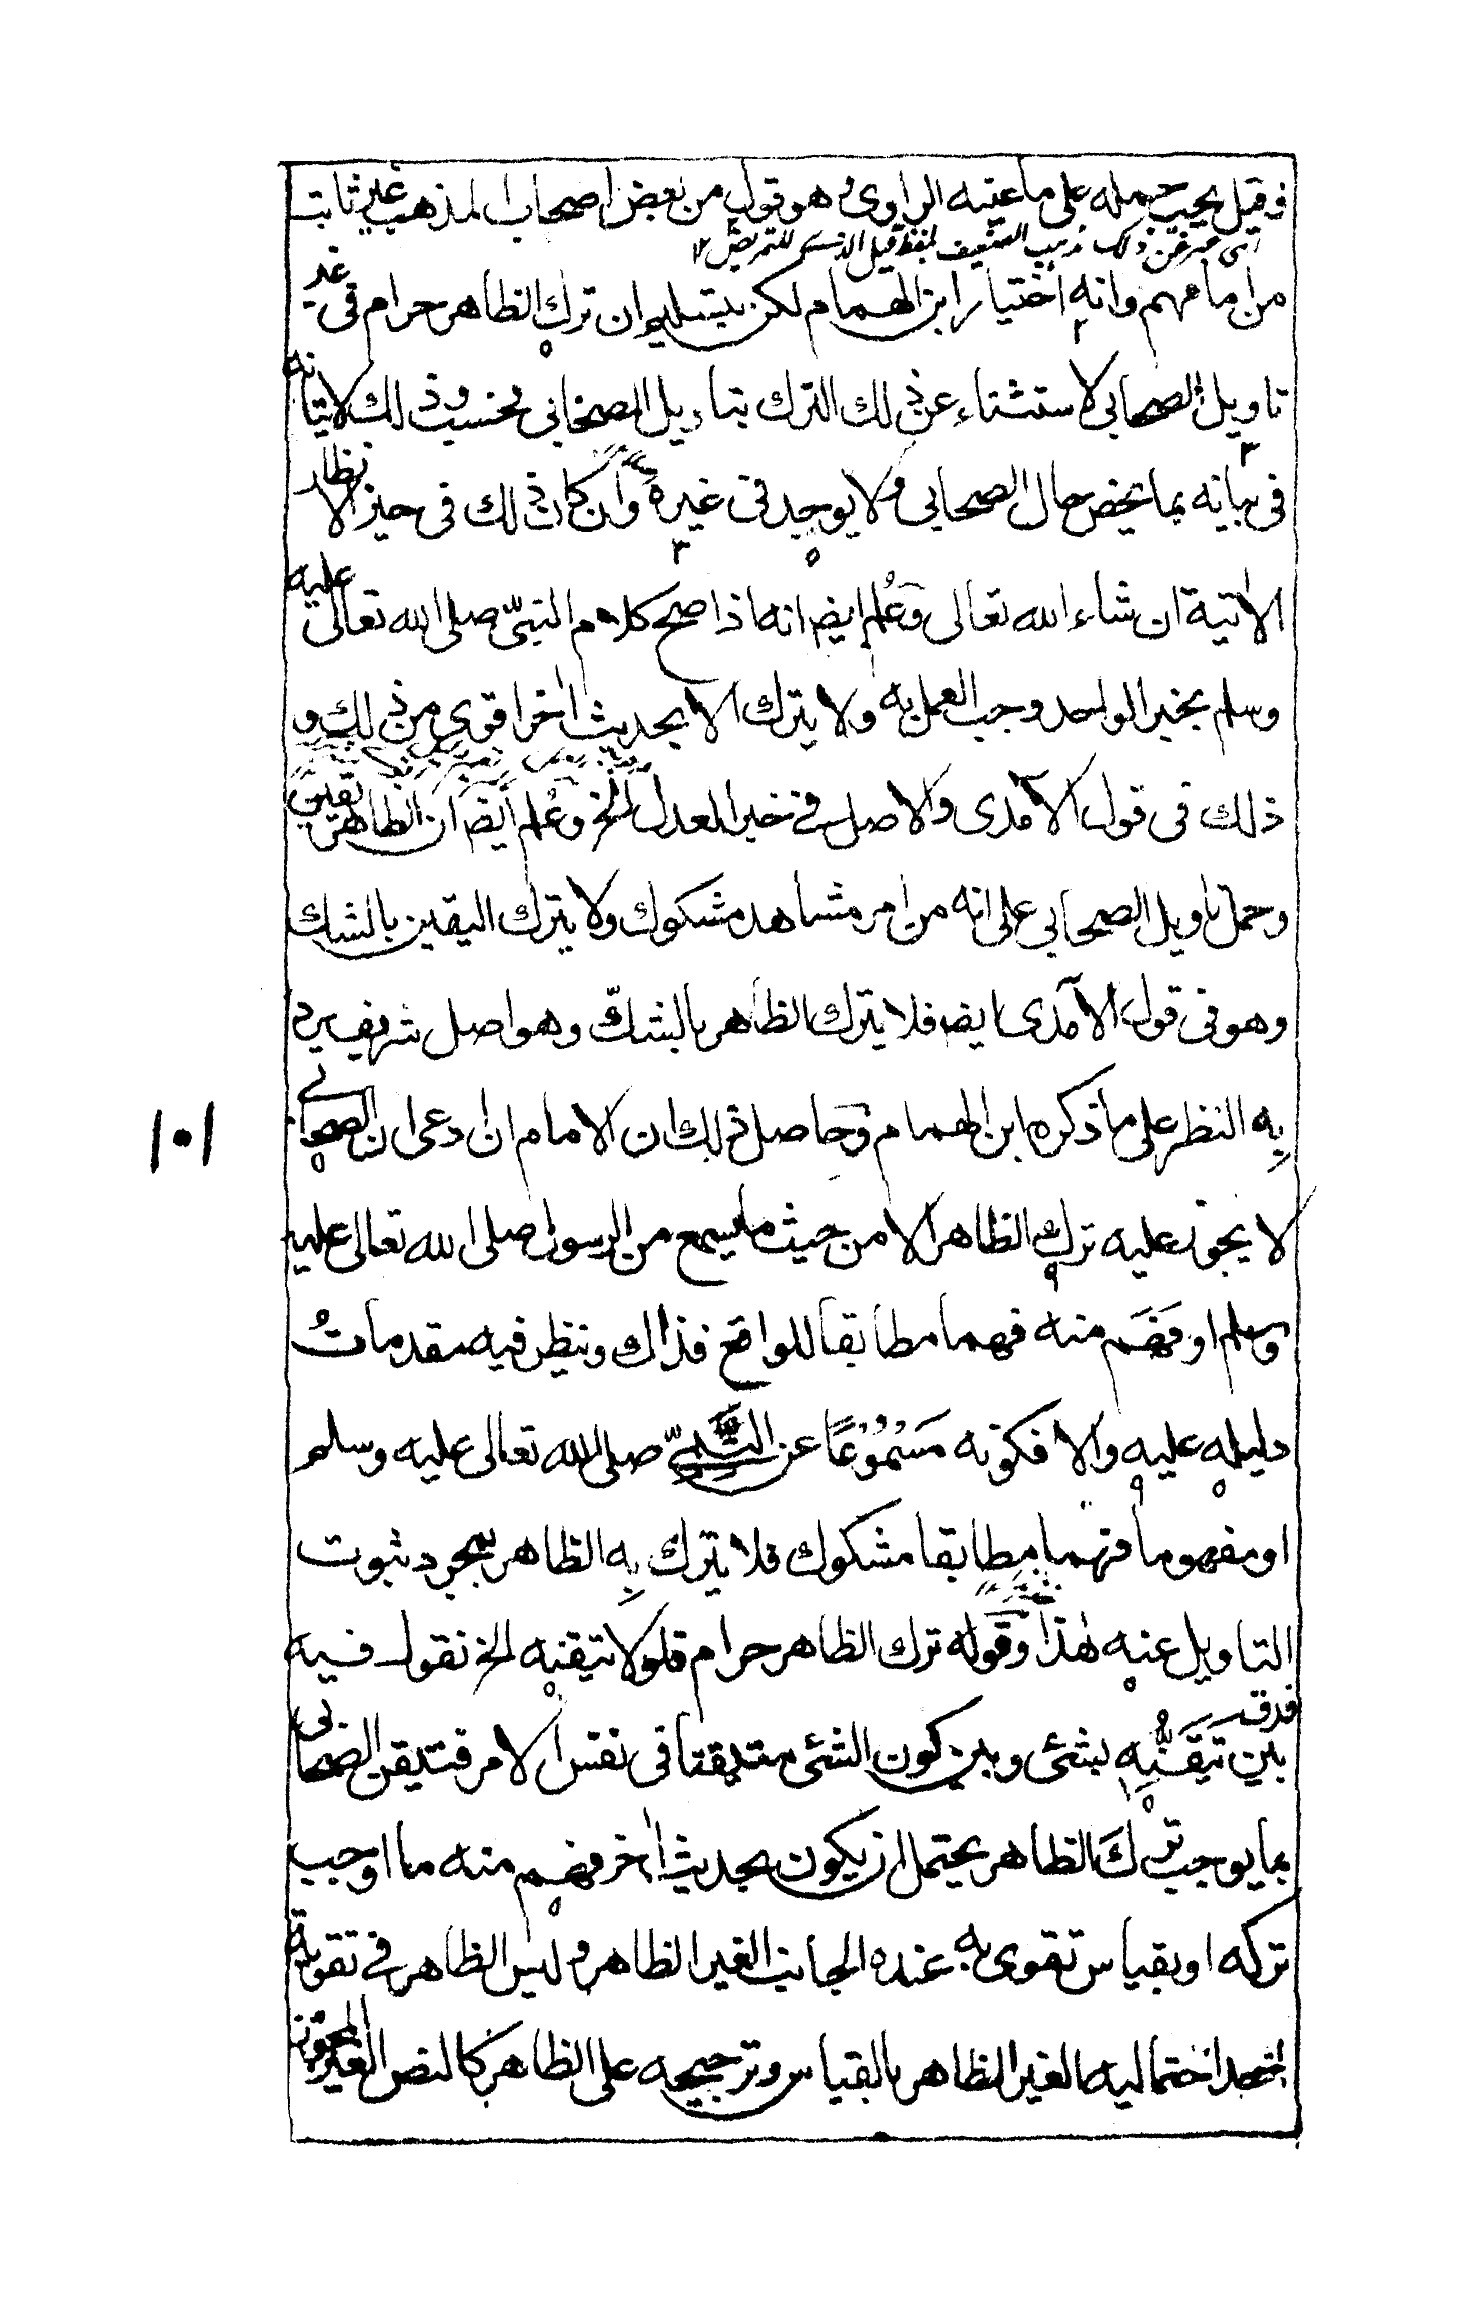 وقيل يجب حمله على ما عينه الراوى وهو قول من بعض اصحاب المذهب غير ثابت
اى عبر عن ذلك المصنف بلفظ قيل الذى للتمريض ١٢
من امامهم وانه اختيار ابن الهمام لكن بتسليم ان ترك الظاهر حرام فى غير
تاويل الصحابى لاستثناء عن ذلك الترك بتاويل الصحابى فحسب وذلك لايتانه
فى بيانه بما يخص حال الصحابى ولا يوجد فى غيره وان كان ذلك فى حيز الانظار
الاتية ان شاء الله تعالى وعُلم ايضا انه اذا صح كلام النبىّ صلى الله تعالى عليه
وسلم بخبر الواحد وجب العمل به ولا يترك الا بحديث اٰخر اقوى من ذلك و
ذلك فى قول الاٰمدى والاصل فى خبر العدل الخ وعُلم ايضا ان الظاهر يقين
وحمل تاويل الصحابى على انه من امر مشاهد مشكوك ولا يترك اليقين بالشك
وهو فى قول الاٰمدى ايضا فلا يترك الظاهر بالشكّ وهو اصل شريف يرد
به النظر على ما ذكره ابن الهمام وحاصل ذلك ان الامام ان ادعى ان الصحابى
لا يجوز عليه ترك الظاهر الا من حيث ما يسمع من الرسول صلى الله تعالى عليه
وسلم او فَهَم منه فهما مطابقا للواقع فذاك وننظر فيه مقدمات
دليله عليه والا فكونه مَسْمُوْعًا عن النَّبِىّ صلى الله تعالى عليه وسلم
او مفهوما فهما مطابقا مشكوك فلا يترك به الظاهر بمجرد ثبوت
التاويل عنه هٰذا وقوله ترك الظاهر حرام فلولا تيقنه الخ نقول فيه
فرق بين تَيَقُّنِه بشئى وبين كون الشئى متيقنا فى نفس الامر فتيقن الصحابى
بما يوجب تركَ الظاهر يحتمل ان يكون بحديث اٰخر فهم منه ما اوجب
تركه او بقياس تقوى به عنده الجانب الغير الظاهر وليس الظاهر فى تقوية
احد احتماليه الغير الظاهر بالقياس وترجيحه على الظاهر كالنص الغير